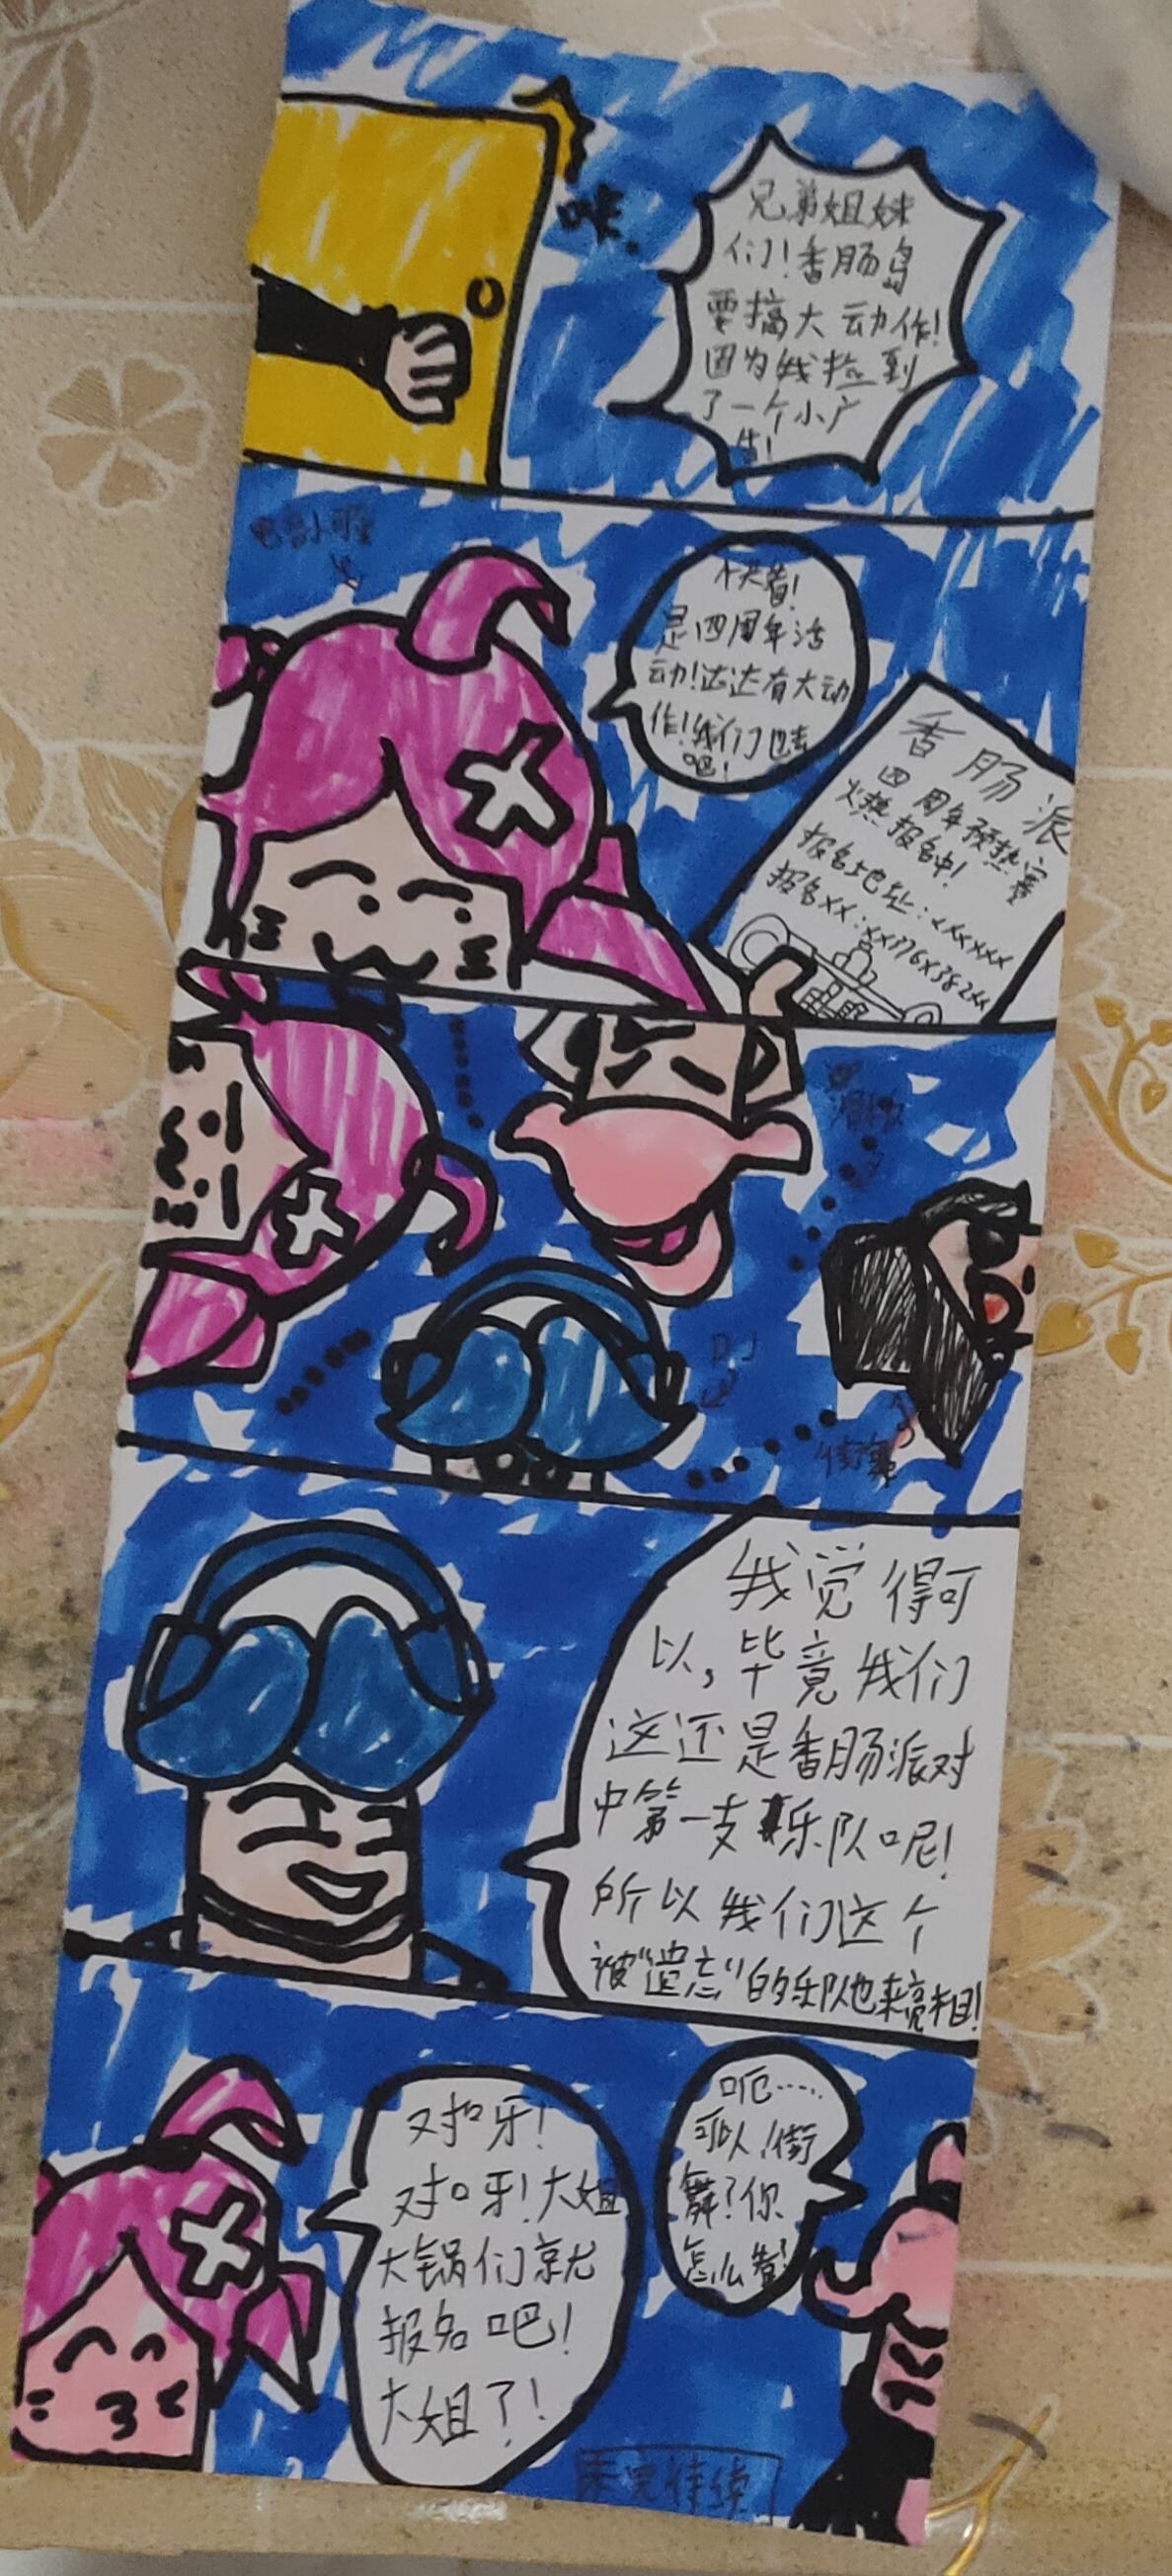 咔.
兄弟姐妹
们！香肠岛
要搞大动作！
因为我捡到
了一个小广
告！
是四周年活
动！达达有大动
作！我们也去
吧！
香肠派
四周年预热赛
火热报名中！
报名地址：xxxxxxx
报名xx：xx376x382xx
DJ
街舞
我觉得可
以，毕竟我们
这还是香肠派对
中第一支乐队呢！
所以我们这个
被“遗忘”的乐队也来亮相！
对口牙！
对口牙！大姐
大锅们就
报名吧！
大姐了！
呃……
可以！街
舞？你
怎么看？
未完待续